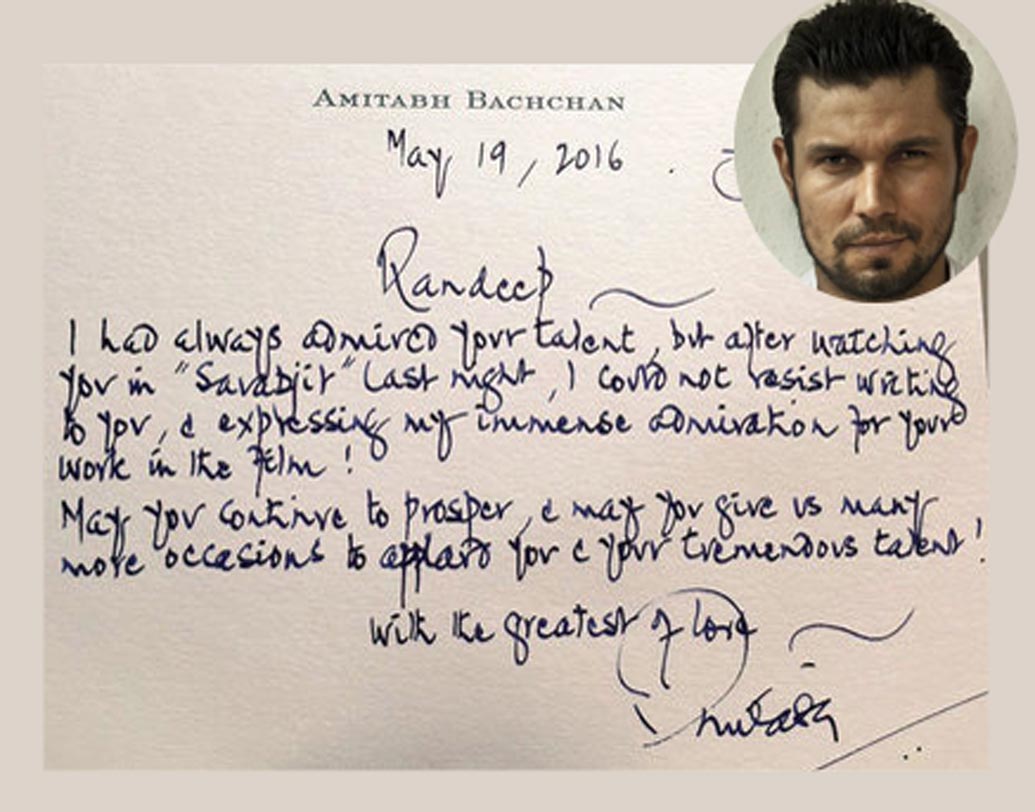 AMITABH BACHCHAN
May 19, 2016.
Randeep
I had always admired your talent, but after watching
you in "Sarabjit" last night, I could not resist writing
to you, & expressing my immense admiration for your
work in the film!
May you continue to prosper, & may you give us many
more occasions to applaud you & your tremendous talent!
with the greatest of love
Amitabh